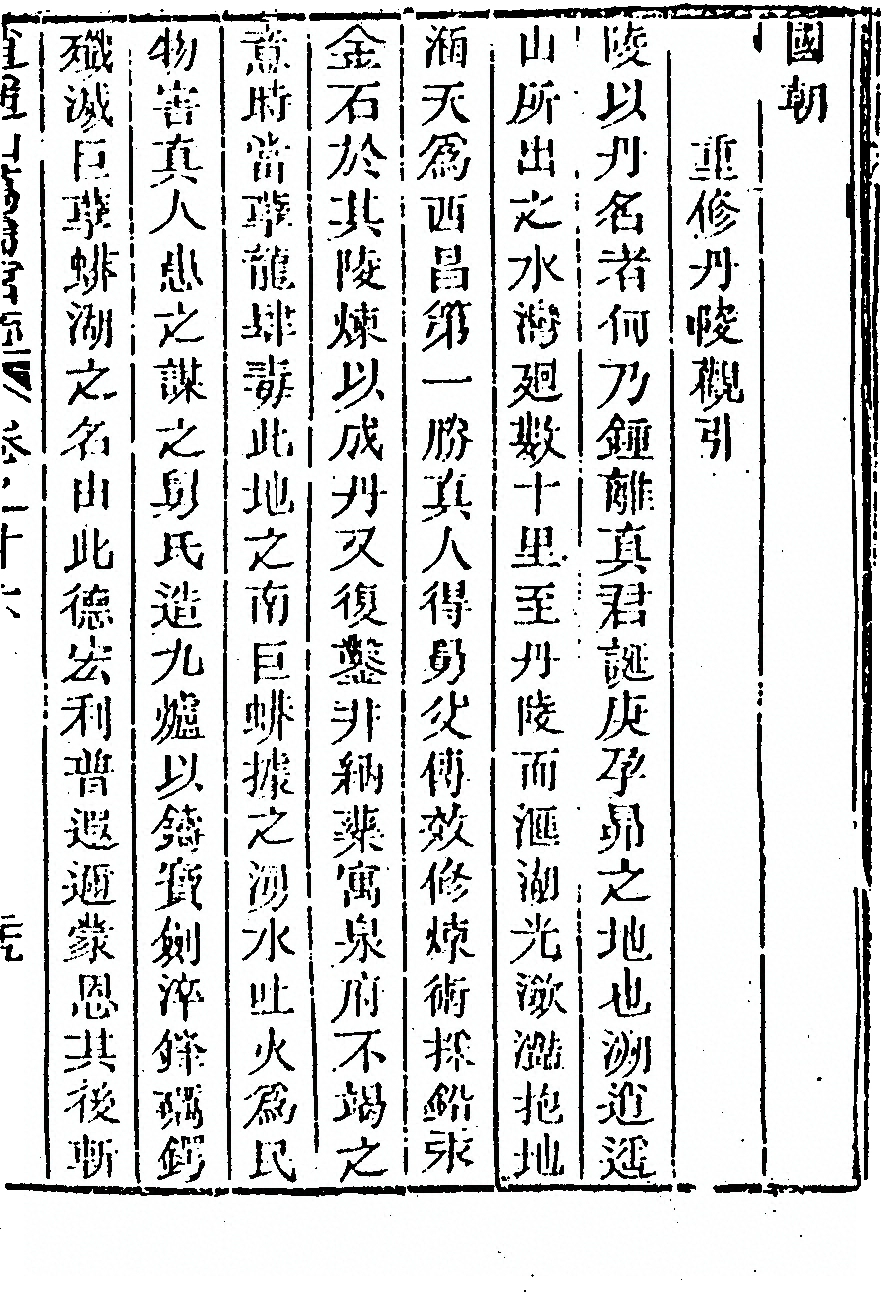 國朝
重修丹陵觀引
陵以丹名者何乃鍾離真君誕庚孕昴之地也溯逍遥
山所出之水灣廻數十里至丹陵而滙湖光瀲灩抱地
涵天爲西昌第一勝真人得舅父傳效修煉術採鉛汞
金石於其陵煉以成丹又復鑿井納藥寓泉府不竭之
意時當孽龍肆毒此地之南巨蜯據之湧水吐火爲民
物害真人患之謀之舅氏造九爐以鑄寶劍淬鋒礪鍔
殲滅巨孽蜯湖之名由此德宏利普遐邇蒙恩其後斬
逍遥山萬壽宮 卷之十六